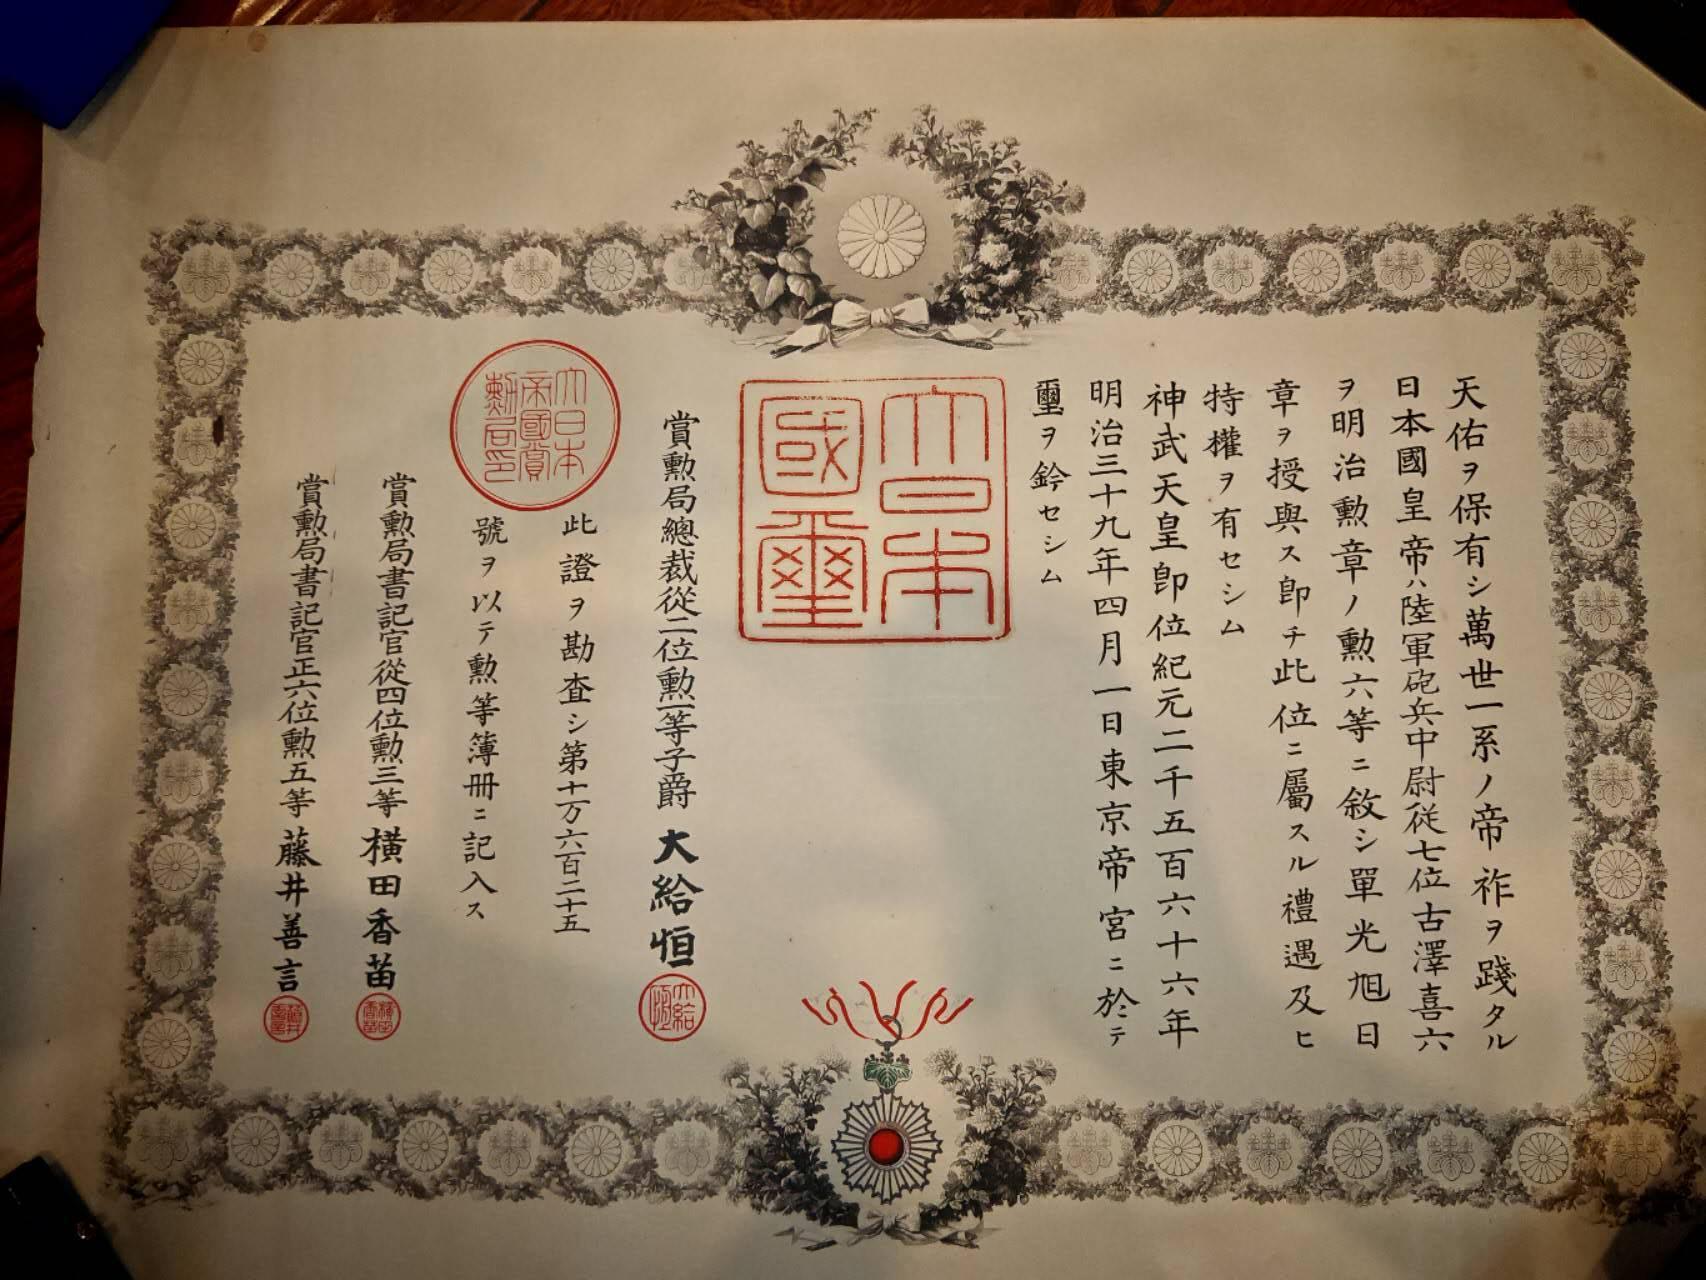 天佑ヲ保有シ萬世一系ノ帝祚ヲ踐タル
日本國皇帝ハ陸軍砲兵中尉従七位古澤喜六
ヲ明治勲章ノ勲六等ニ敘シ單光旭日
章ヲ授與ス即チ此位ニ屬スル禮遇及ヒ
特權ヲ有セシム
神武天皇即位紀元二千五百六十六年
明治三十九年四月一日東京帝宮ニ於テ
璽ヲ鈐セシム
大日本
國璽
賞勲局總裁從二位勲一等子爵大給恒
大給恒
此證ヲ勘査シ第十万六百二十五
號ヲ以テ勲等簿冊ニ記入ス
大日本
帝國賞
勲局印
賞勲局書記官從四位勲三等横田香苗
横田香苗
賞勲局書記官正六位勲五等藤井善言
藤井善言